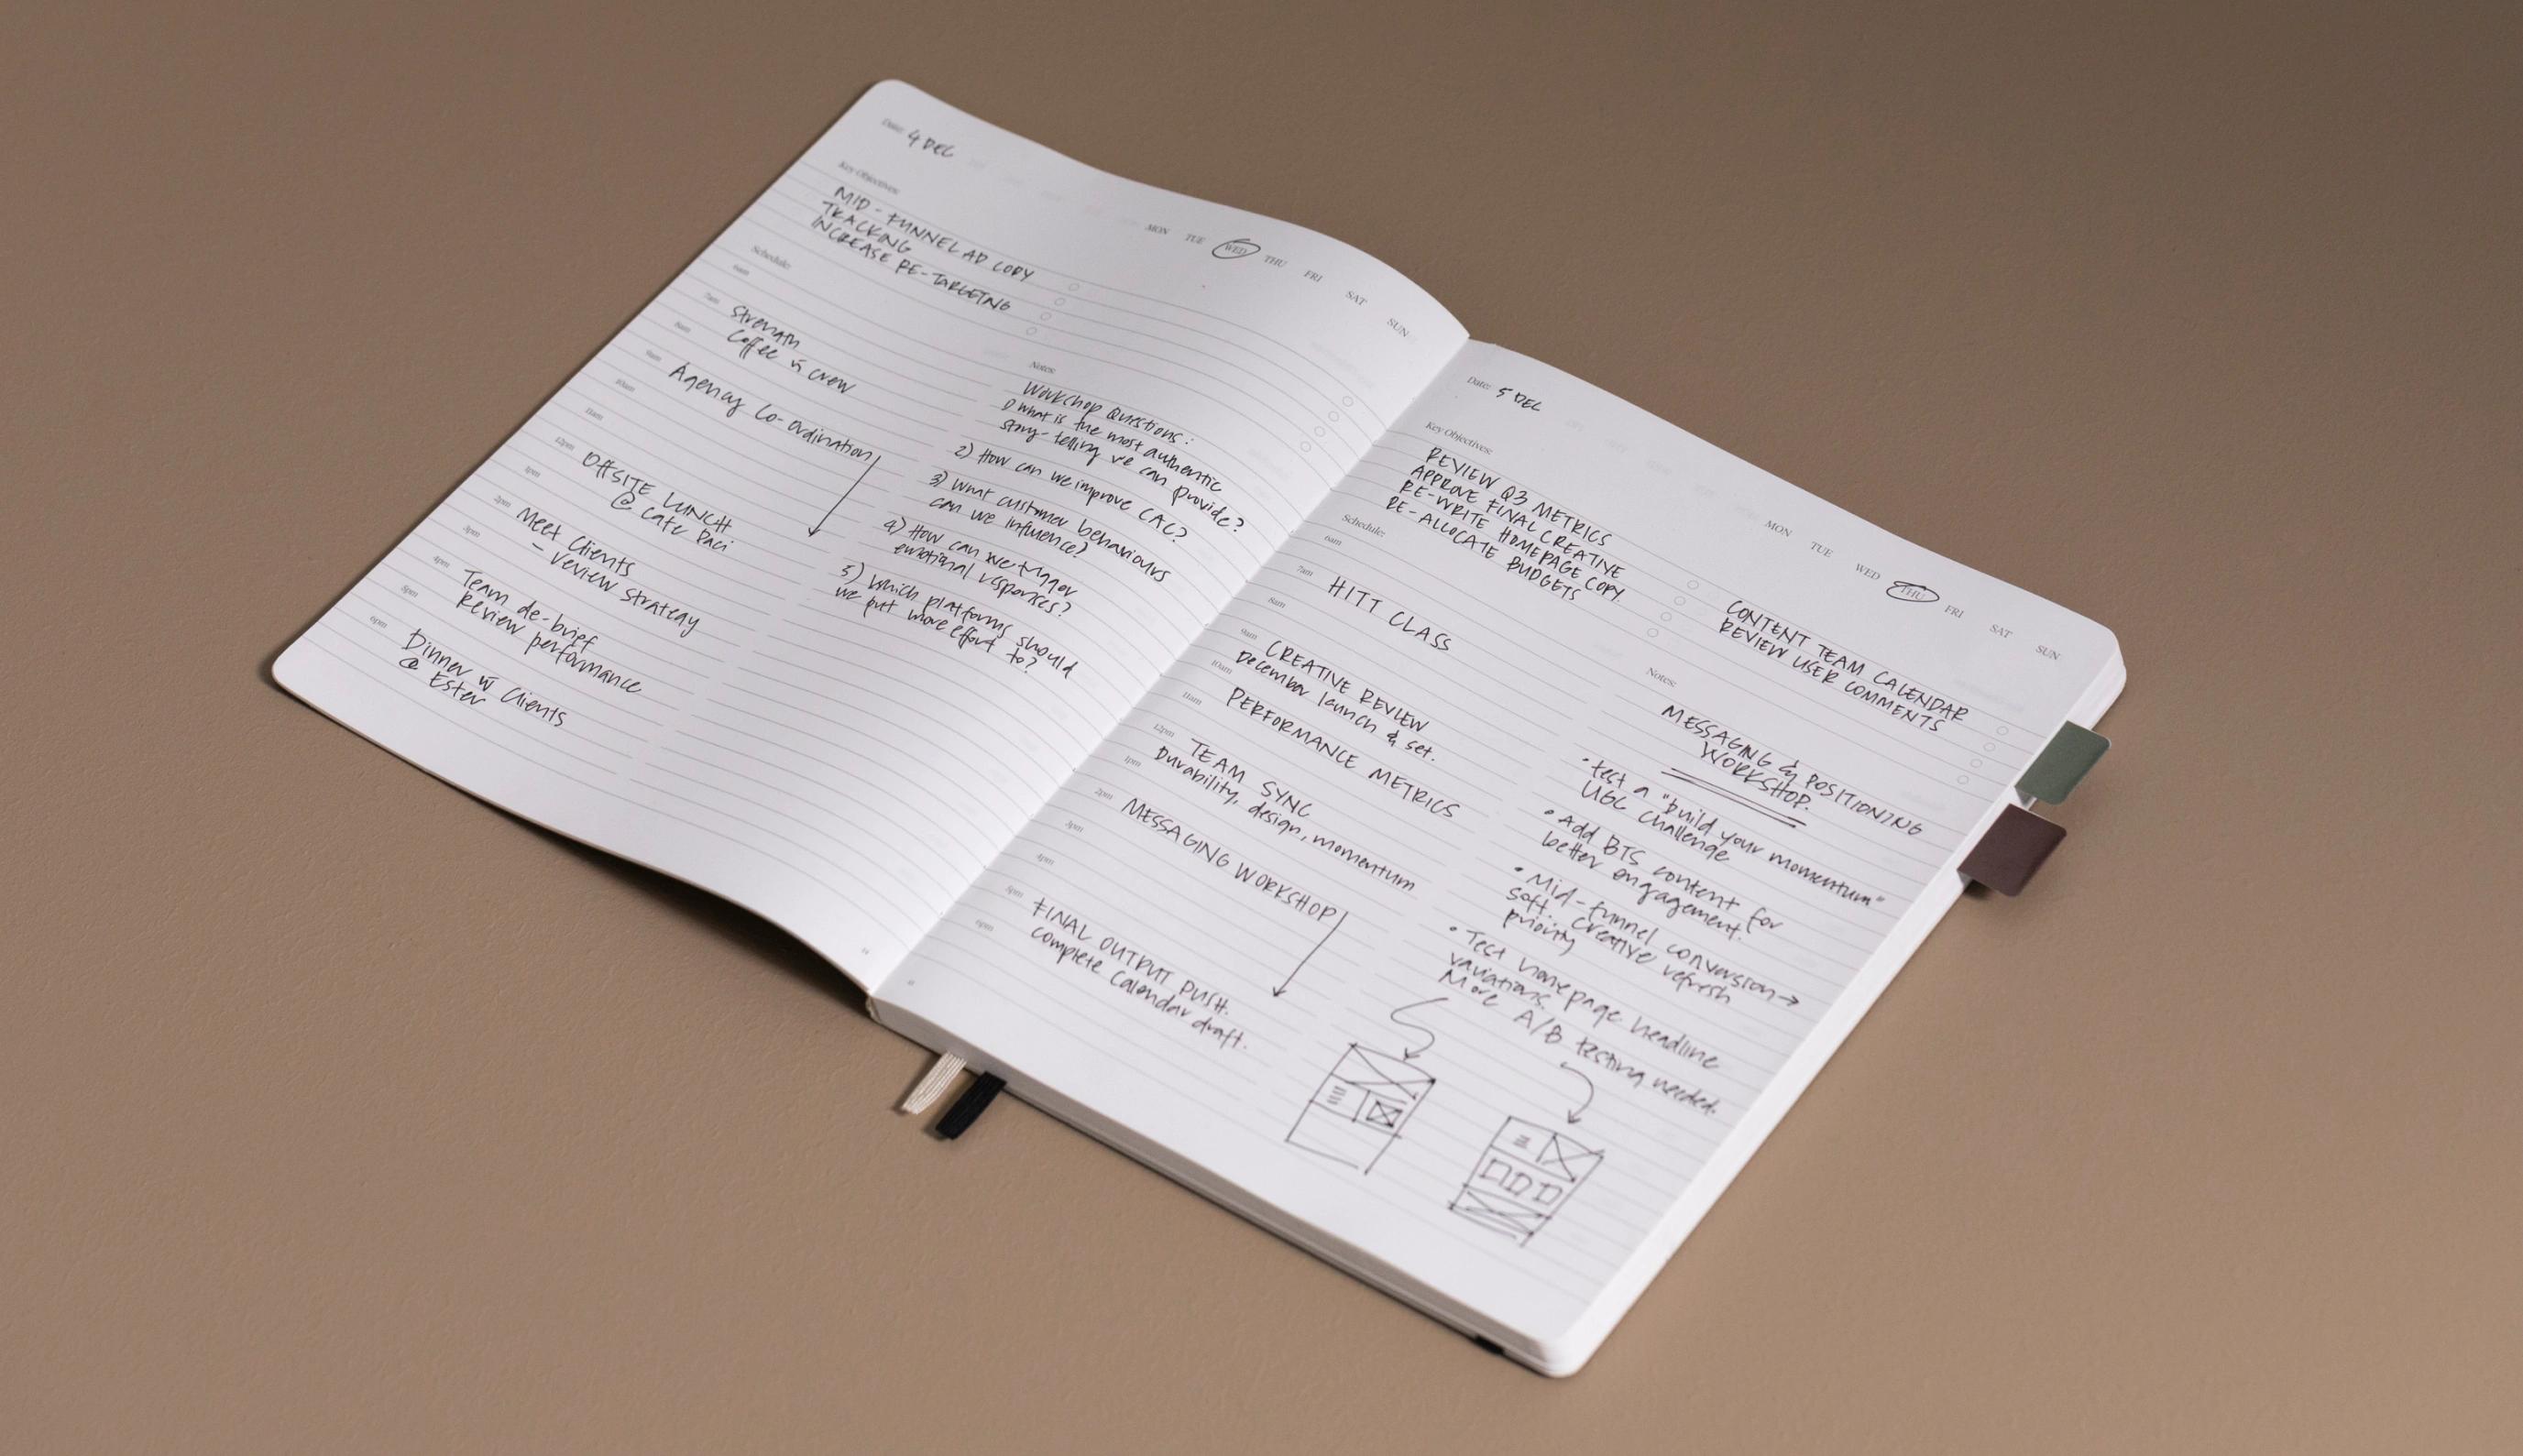 Date: 4 DEC
MON TUE WED THU FRI SAT SUN
Key Objectives:
MID-FUNNEL AD COPY
TRACKING
INCREASE RE-TARGETING
Schedule:
6am
7am
Strength
8am
Coffee w̄ crew
9am
Agency Co-ordination
10am
11am
12pm
OFFSITE LUNCH
1pm
@ Cafe Paci
2pm
Meet Clients
- review strategy
3pm
4pm
Team de-brief
5pm
Review performance
6pm
Dinner w̄ Clients
@ Ester
Notes:
Workshop Questions:
1) What is the most authentic
story-telling we can provide?
2) How can we improve CAC?
3) What customer behaviours
can we influence?
4) How can we trigger
emotional responses?
5) Which platforms should
we put more effort to?
Date: 5 DEC
MON TUE WED THU FRI SAT SUN
Key Objectives:
REVIEW Q3 METRICS
APPROVE FINAL CREATIVE
RE-WRITE HOMEPAGE COPY.
RE-ALLOCATE BUDGETS
CONTENT TEAM CALENDAR
REVIEW USER COMMENTS
Schedule:
6am
7am
HITT CLASS
8am
9am
CREATIVE REVIEW
10am
December launch & set.
11am
PERFORMANCE METRICS
12pm
TEAM SYNC
1pm
Durability, design, momentum
2pm
MESSAGING WORKSHOP
3pm
4pm
5pm
FINAL OUTPUT PUSH.
6pm
Complete Calendar draft.
Notes:
MESSAGING & POSITIONING
WORKSHOP.
• Test a "build your momentum"
UGC Challenge
• Add BTS content for
better engagement.
• Mid-funnel conversion →
soft. Creative refresh
priority
• Test homepage headline
variations.
More A/B testing needed.